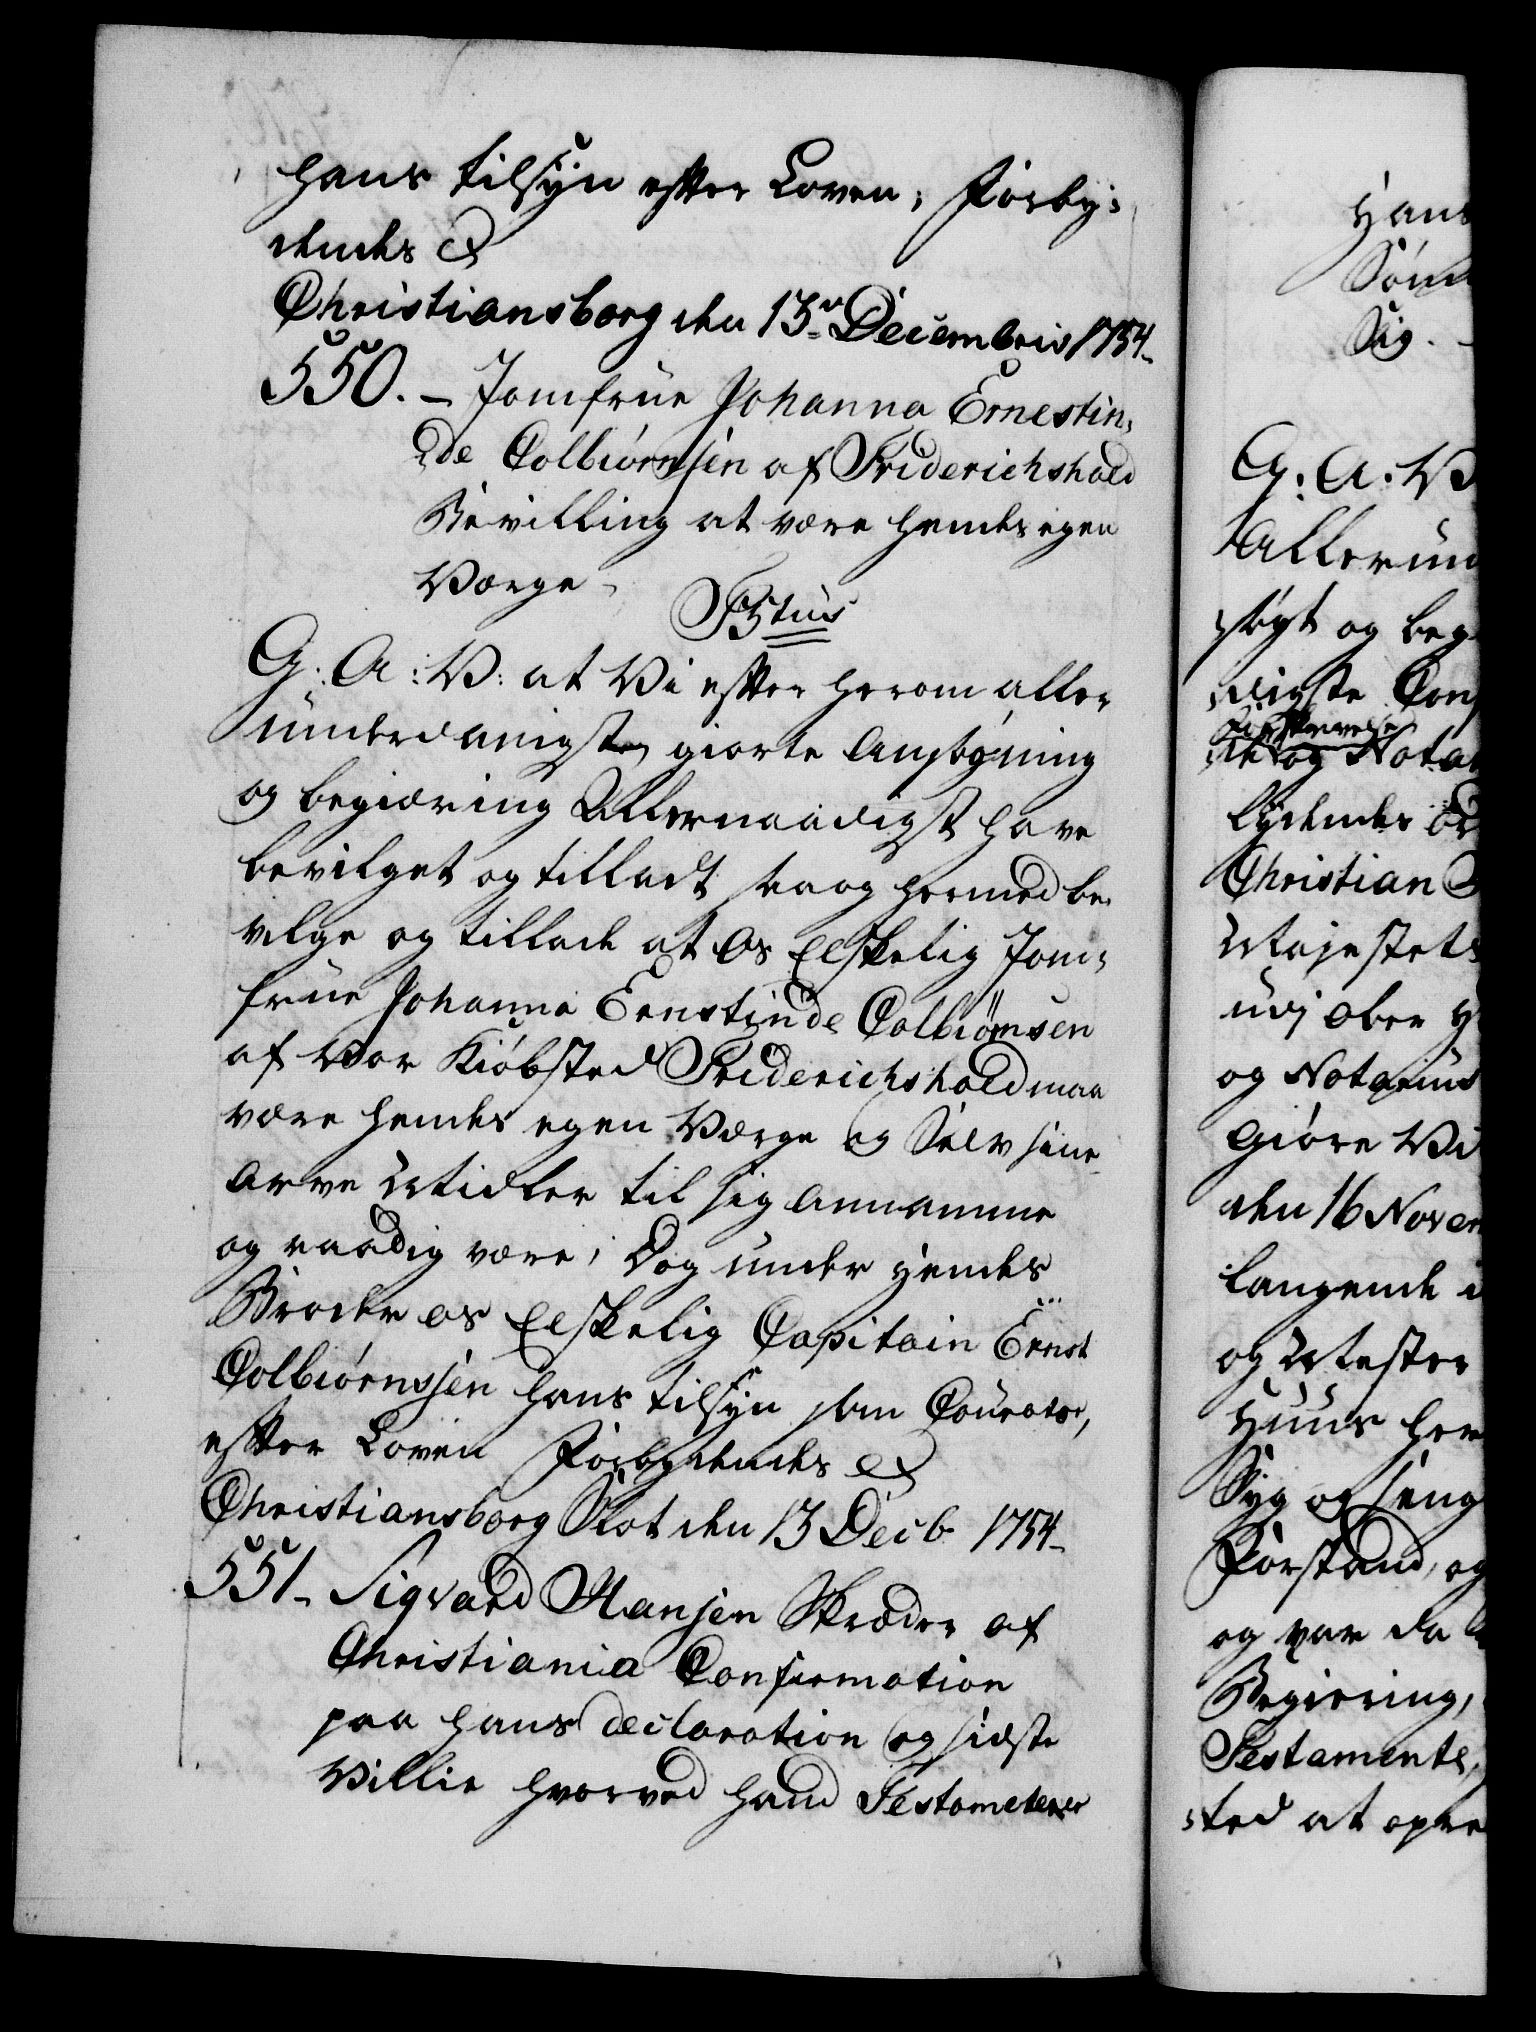 hans tilsyn efter Loven, Forby-
dendes &
Christiansborg den 13de Decembris 1754.
550. - Jomfrue Johanna Ernestin-
de Colbiørnsen af Friderichshald
Bevilling at være hendes egen
Værge -
Fr: 5tus
G: A: V: at Vi efter herom aller-
underdanigst giorte Ansøgning
og begiæring Allernaadigst have
bevilget og tilladt saa og hermed be-
vilge og tillade at Os Elskelig Jom-
frue Johanna Ernstinde Colbiørnsen
af Vor Kiøbsted Friderichshald maa
være hendes egen Værge og Selv sine
Arve Midler til sig annamme
og raadig være, Dog under hendes
Broder os Elskelig Capitain Ernst
Colbiørnsen hans tilsyn som Courator,
efter Loven Forbydendes &
Christiansborg Slot den 13 Decb 1754.
551. Sigvard Hansen Skræder af
Christiania Confirmation
paa hans declaration og sidste
Villie hvorved hand Testamenterer
Hans
Sig.
G: A: V
Allerun
søgt og beg
digste Con
og Nota
lydendes
Christian
Majestets
udj Ober
og Notarius
Giøre Vi
den 16 Novem
langende
og Mester
Huus her
Syg og seng
Forstand, og
og var da
Begiering,
Testamente,
sted at opre